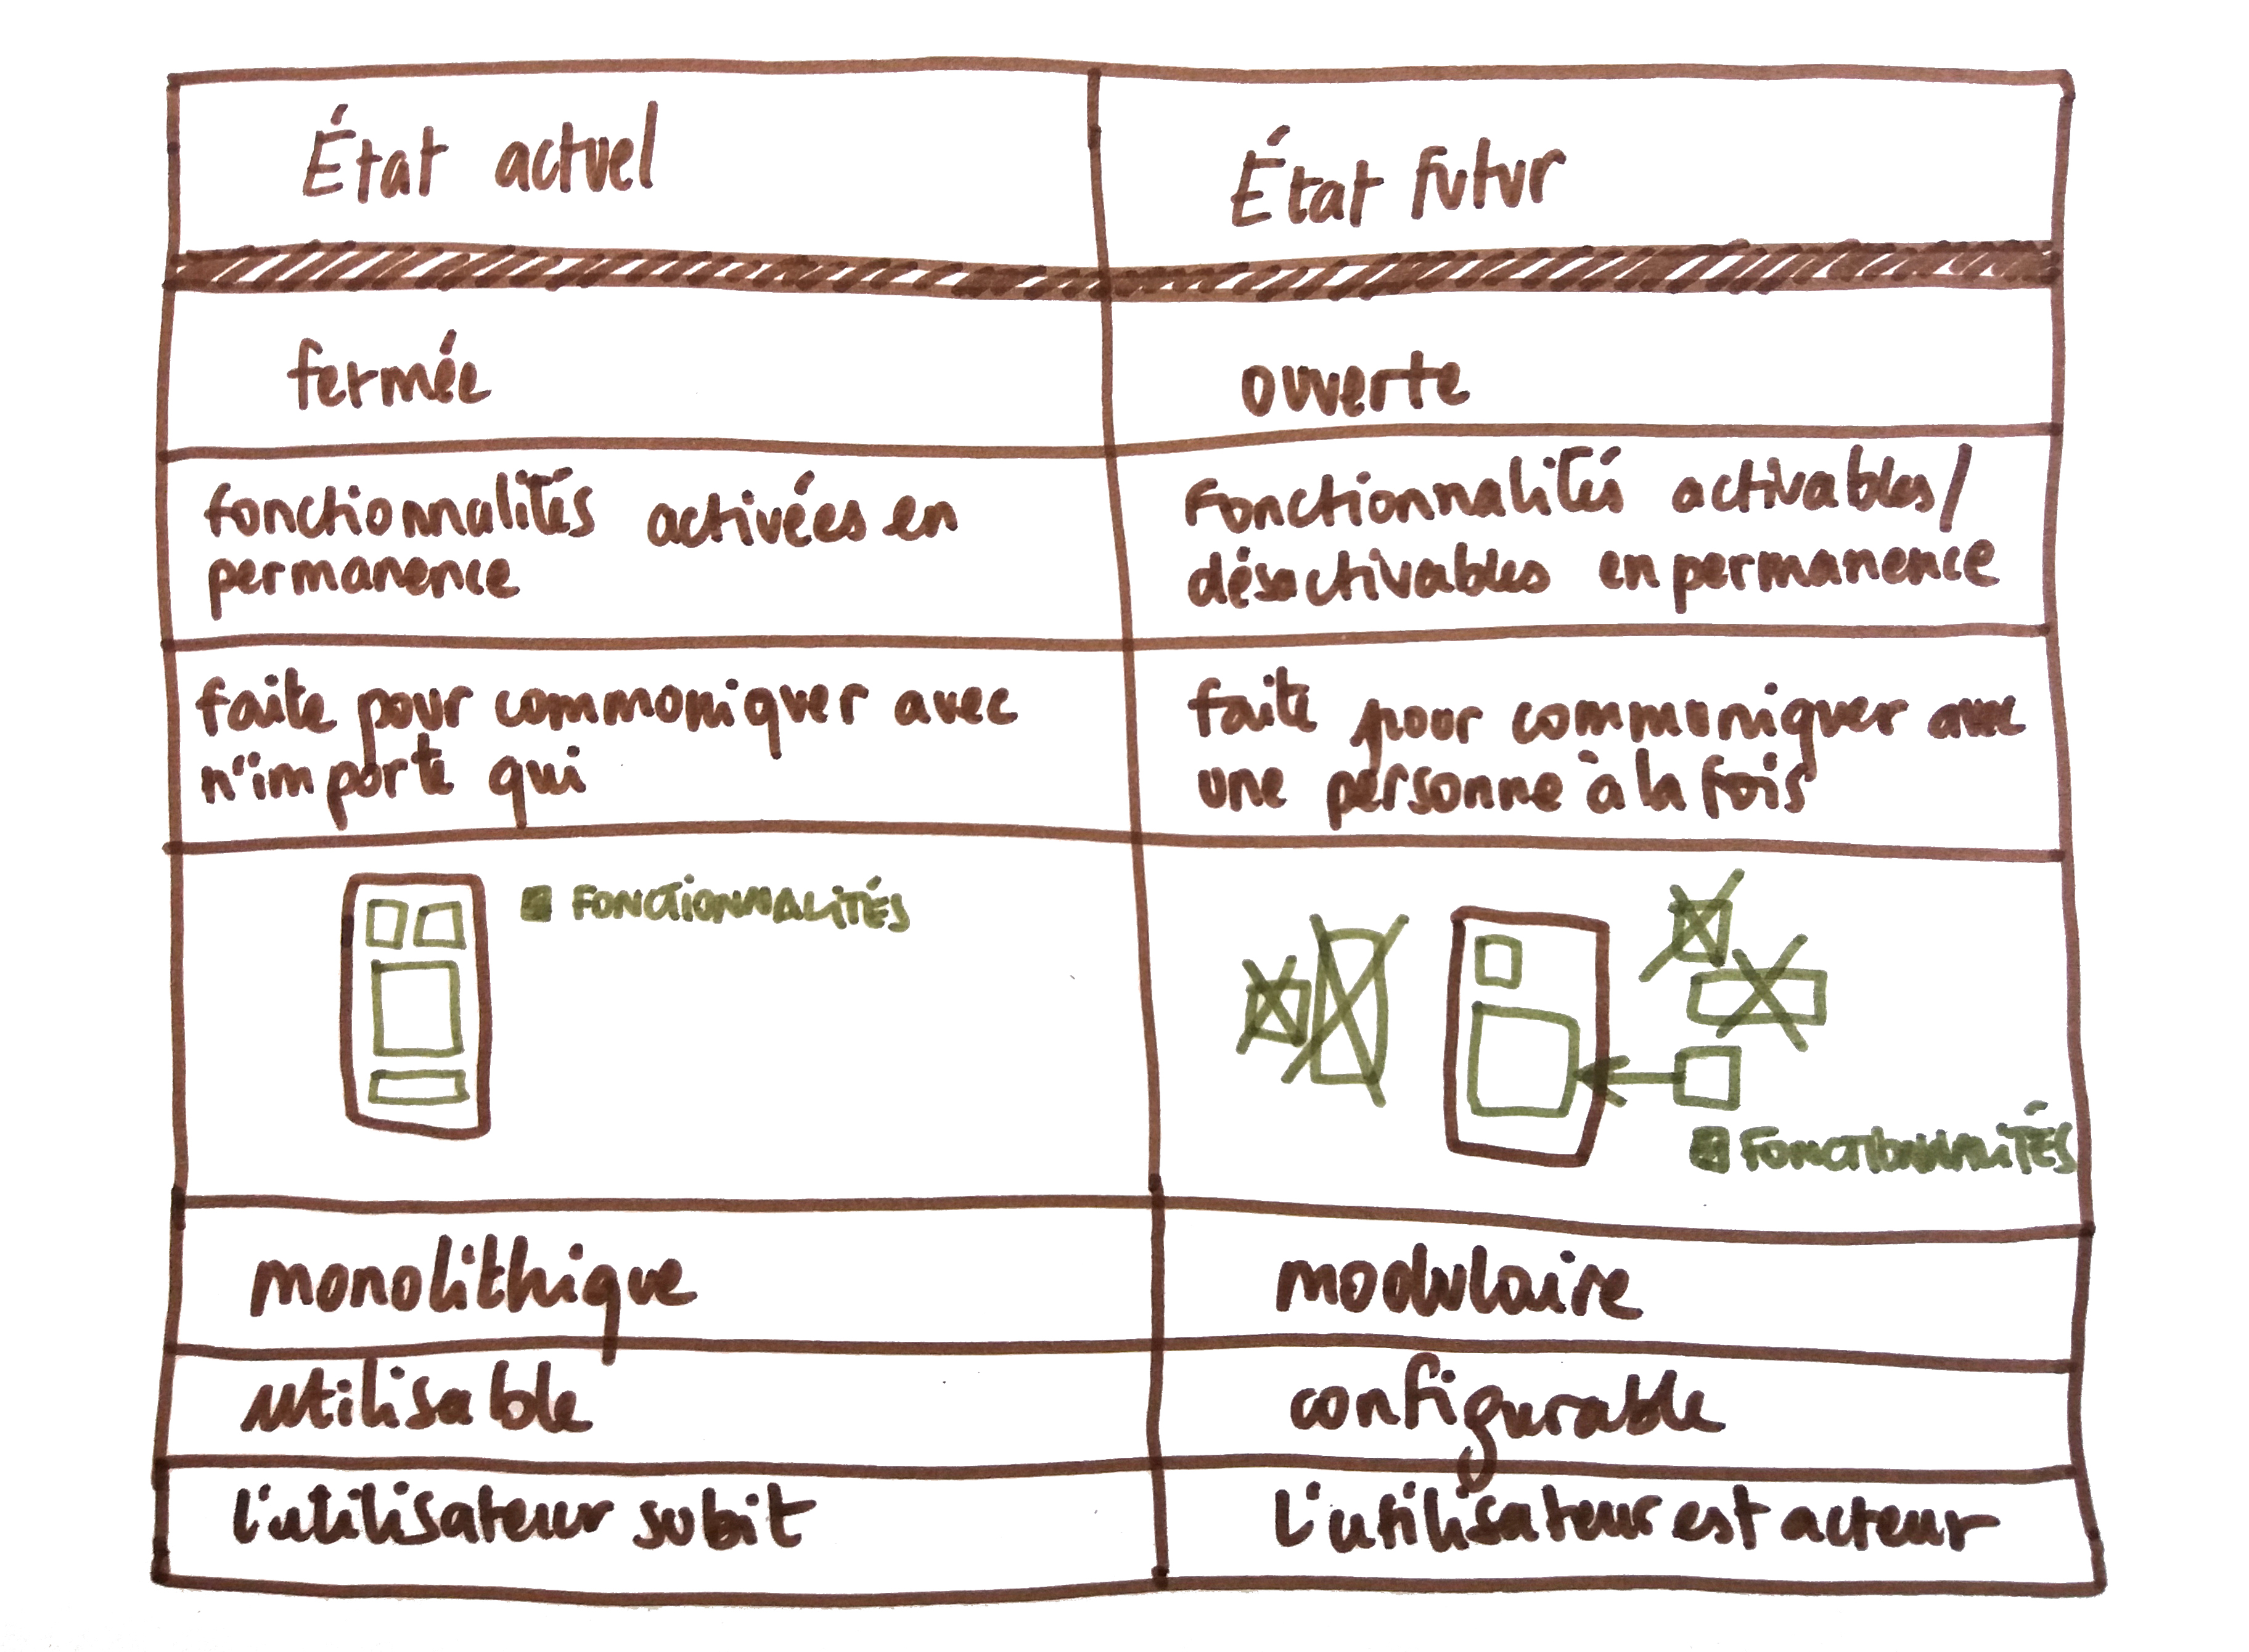 État actuel
État futur
fermée
ouverte
fonctionnalités activées en
permanence
Fonctionnalités activables/
désactivables en permanence
faite pour communiquer avec
n'importe qui
faite pour communiquer avec
une personne à la fois
FONCTIONNALITÉS
FONCTIONNALITÉS
monolithique
modulaire
utilisable
configurable
l'utilisateur subit
L'utilisateur est acteur